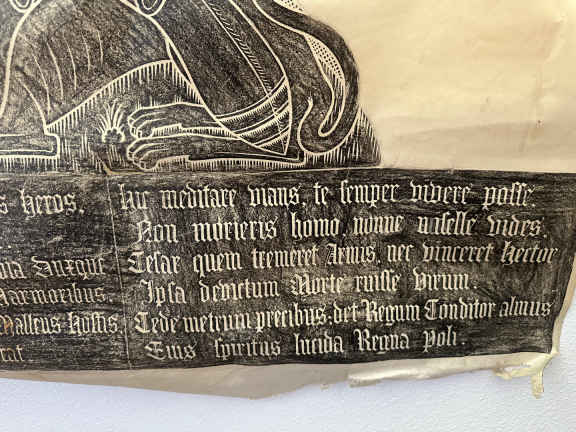 heros.
Duxque
Marmoribus.
Malleus hostis.
Hic meditare vians, te semper vivere posse:
Non morieris homo, nonne miselle vides.
Cesar quem tremeret Armis, nec vinceret Hector
Ipsa devictum Morte ruisse virum.
Cede metrum precibus: det Regum Conditor almus
Eius spiritus lucida Regna Poli.